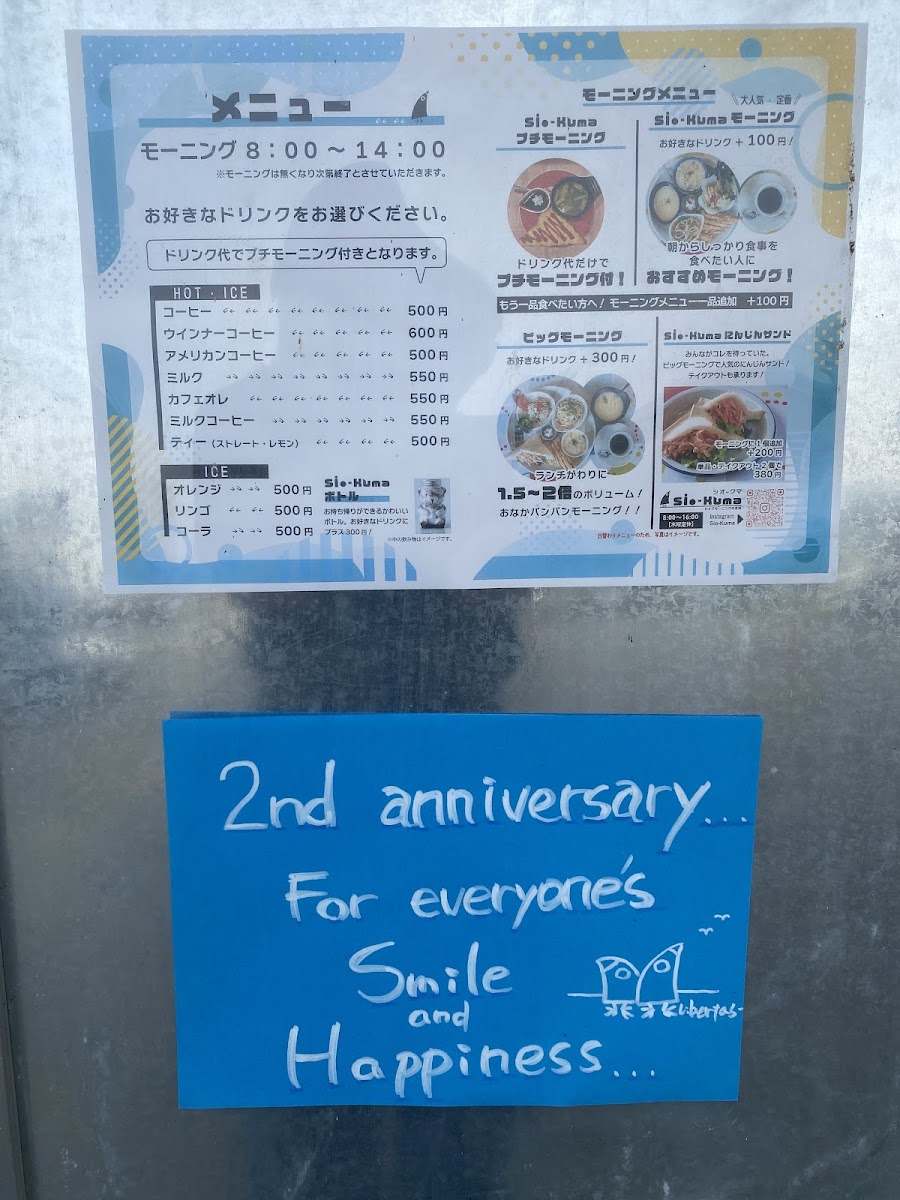 メニュー
モーニング 8：00 ～ 14：00
※モーニングは無くなり次第終了とさせていただきます。
お好きなドリンクをお選びください。
ドリンク代でプチモーニング付きとなります。
HOT・ICE
コーヒー 500円
ウインナーコーヒー 600円
アメリカンコーヒー 500円
ミルク 550円
カフェオレ 550円
ミルクコーヒー 550円
ティー（ストレート・レモン） 500円
ICE
オレンジ 500円
リンゴ 500円
コーラ 500円
Sio-Kuma
ボトル
お持ち帰りができるかわいい
ボトル。お好きなドリンクに
プラス300円！
※中の飲み物はイメージです。
モーニングメニュー
Sio-Kuma
プチモーニング
ドリンク代だけで
プチモーニング付！
大人気・定番
Sio-Kuma モーニング
お好きなドリンク + 100円！
朝からしっかり食事を
食べたい人に
おすすめモーニング！
もう一品食べたい方へ！ モーニングメニュー一品追加 +100円
ビッグモーニング
お好きなドリンク + 300円！
ランチがわりに
1.5～2倍のボリューム！
おなかパンパンモーニング！！
Sio-Kuma にんじんサンド
みんながコレを待っていた。
ビッグモーニングで人気のにんじんサンド！
テイクアウトも承ります！
モーニングに1個追加
+200円
単品・テイクアウト 2個で
380円
シオークマ
Sio-Kuma
8:00～16:00
【水曜定休】
Instagram
Sio-Kuma
日替わりメニューのため、写真はイメージです。
2nd anniversary...
For everyone's
Smile
and
Happiness...
libertas